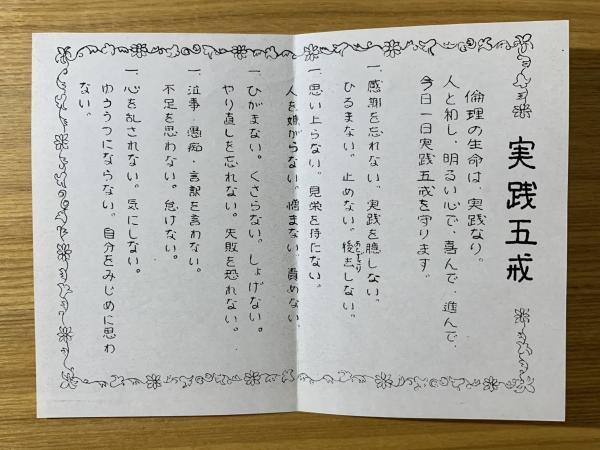 実践五戒
倫理の生命は、実践なり。
人と和し、明るい心で、喜んで、進んで、
今日一日実践五戒を守ります。
一、感謝を忘れない。実践を臆しない。
ひるまない。止めない。後志しない。
あともどり
一、思い上らない。見栄を侍にない。
人を嫌がらない。憎まない。責めない。
一、ひがまない。くさらない。しょげない。
やり直しを忘れない。失敗を恐れない。
一、泣事・愚痴・言訳を言わない。
不足を思わない。怠けない。
一、心を乱されない。気にしない。
ゆううつにならない。自分をみじめに思わ
ない。